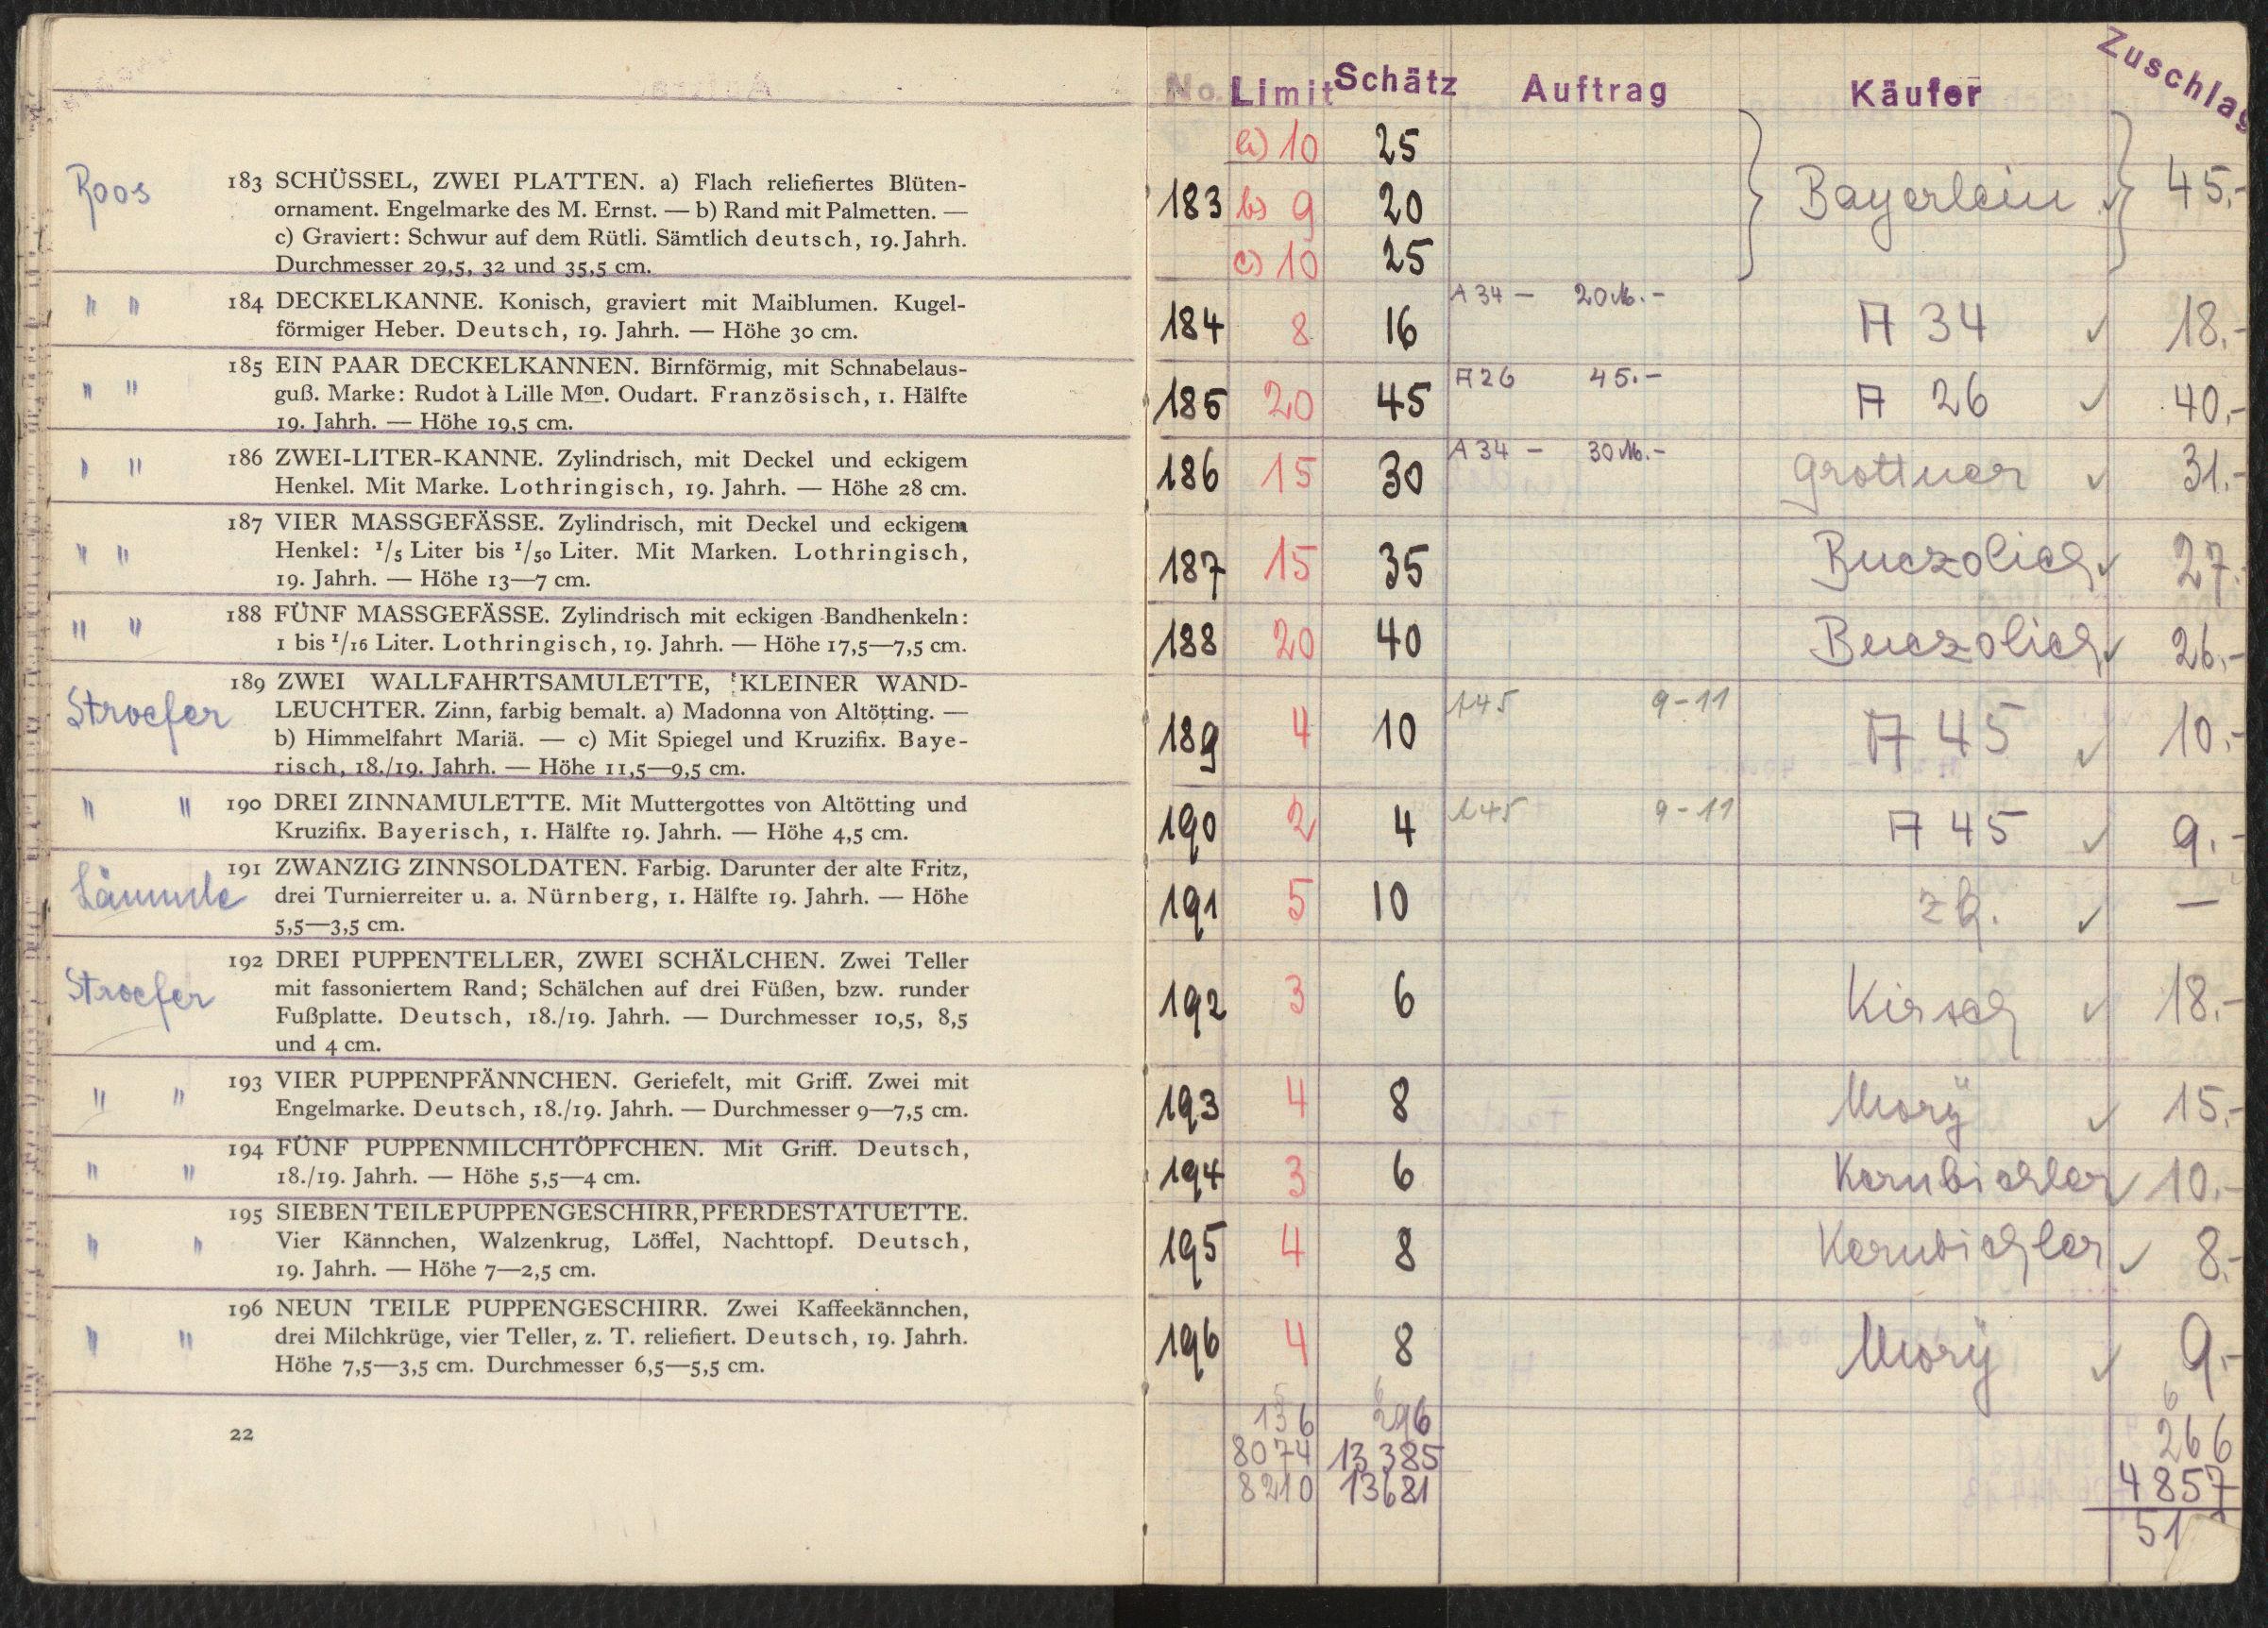 Roos
183 SCHÜSSEL, ZWEI PLATTEN. a) Flach reliefiertes Blüten-
ornament. Engelmarke des M. Ernst. — b) Rand mit Palmetten. —
c) Graviert: Schwur auf dem Rütli. Sämtlich deutsch, 19. Jahrh.
Durchmesser 29,5, 32 und 35,5 cm.
" " 184 DECKELKANNE. Konisch, graviert mit Maiblumen. Kugel-
förmiger Heber. Deutsch, 19. Jahrh. — Höhe 30 cm.
185 EIN PAAR DECKELKANNEN. Birnförmig, mit Schnabelaus-
" " guß. Marke: Rudot à Lille Mon. Oudart. Französisch, 1. Hälfte
19. Jahrh. — Höhe 19,5 cm.
" " 186 ZWEI-LITER-KANNE. Zylindrisch, mit Deckel und eckigem
Henkel. Mit Marke. Lothringisch, 19. Jahrh. — Höhe 28 cm.
187 VIER MASSGEFÄSSE. Zylindrisch, mit Deckel und eckigem
" " Henkel: 1/5 Liter bis 1/50 Liter. Mit Marken. Lothringisch,
19. Jahrh. — Höhe 13—7 cm.
" " 188 FÜNF MASSGEFÄSSE. Zylindrisch mit eckigen Bandhenkeln:
1 bis 1/16 Liter. Lothringisch, 19. Jahrh. — Höhe 17,5—7,5 cm.
189 ZWEI WALLFAHRTSAMULETTE, KLEINER WAND-
Stroefer LEUCHTER. Zinn, farbig bemalt. a) Madonna von Altötting. —
b) Himmelfahrt Mariä. — c) Mit Spiegel und Kruzifix. Baye-
risch, 18./19. Jahrh. — Höhe 11,5—9,5 cm.
" " 190 DREI ZINNAMULETTE. Mit Muttergottes von Altötting und
Kruzifix. Bayerisch, 1. Hälfte 19. Jahrh. — Höhe 4,5 cm.
191 ZWANZIG ZINNSOLDATEN. Farbig. Darunter der alte Fritz,
Lämmle drei Turnierreiter u. a. Nürnberg, 1. Hälfte 19. Jahrh. — Höhe
5,5—3,5 cm.
192 DREI PUPPENTELLER, ZWEI SCHÄLCHEN. Zwei Teller
Stroefer mit fassoniertem Rand; Schälchen auf drei Füßen, bzw. runder
Fußplatte. Deutsch, 18./19. Jahrh. — Durchmesser 10,5, 8,5
und 4 cm.
" " 193 VIER PUPPENPFÄNNCHEN. Geriefelt, mit Griff. Zwei mit
Engelmarke. Deutsch, 18./19. Jahrh. — Durchmesser 9—7,5 cm.
194 FÜNF PUPPENMILCHTÖPFCHEN. Mit Griff. Deutsch,
" " 18./19. Jahrh. — Höhe 5,5—4 cm.
195 SIEBEN TEILE PUPPENGESCHIRR, PFERDESTATUETTE.
" " Vier Kännchen, Walzenkrug, Löffel, Nachttopf. Deutsch,
19. Jahrh. — Höhe 7—2,5 cm.
196 NEUN TEILE PUPPENGESCHIRR. Zwei Kaffeekännchen,
" " drei Milchkrüge, vier Teller, z. T. reliefiert. Deutsch, 19. Jahrh.
Höhe 7,5—3,5 cm. Durchmesser 6,5—5,5 cm.
22
No. Limit Schätz Auftrag Käufer Zuschlag
a) 10 25
183 b) 9 20 Bayerlein ✓ 45.-
c) 10 25
A 34 — 20 M.-
184 8 16 A 34 ✓ 18.-
A 26 45.-
185 20 45 A 26 ✓ 40.-
A 34 — 30 M.-
186 15 30 Grottner ✓ 31.-
187 15 35 Buczolich ✓ 27.-
188 20 40 Buczolich ✓ 26.-
A45 9-11
189 4 10 A 45 ✓ 10.-
A45 9-11
190 2 4 A 45 ✓ 9.-
191 5 10 ✓ —
192 3 6 Kirsch ✓ 18.-
193 4 8 Morÿ ✓ 15.-
194 3 6 Kernbichler ✓ 10.-
195 4 8 Kernbichler ✓ 8.-
196 4 8 Morÿ ✓ 9.-
136 296 266
8074 13385 4857
8210 13681